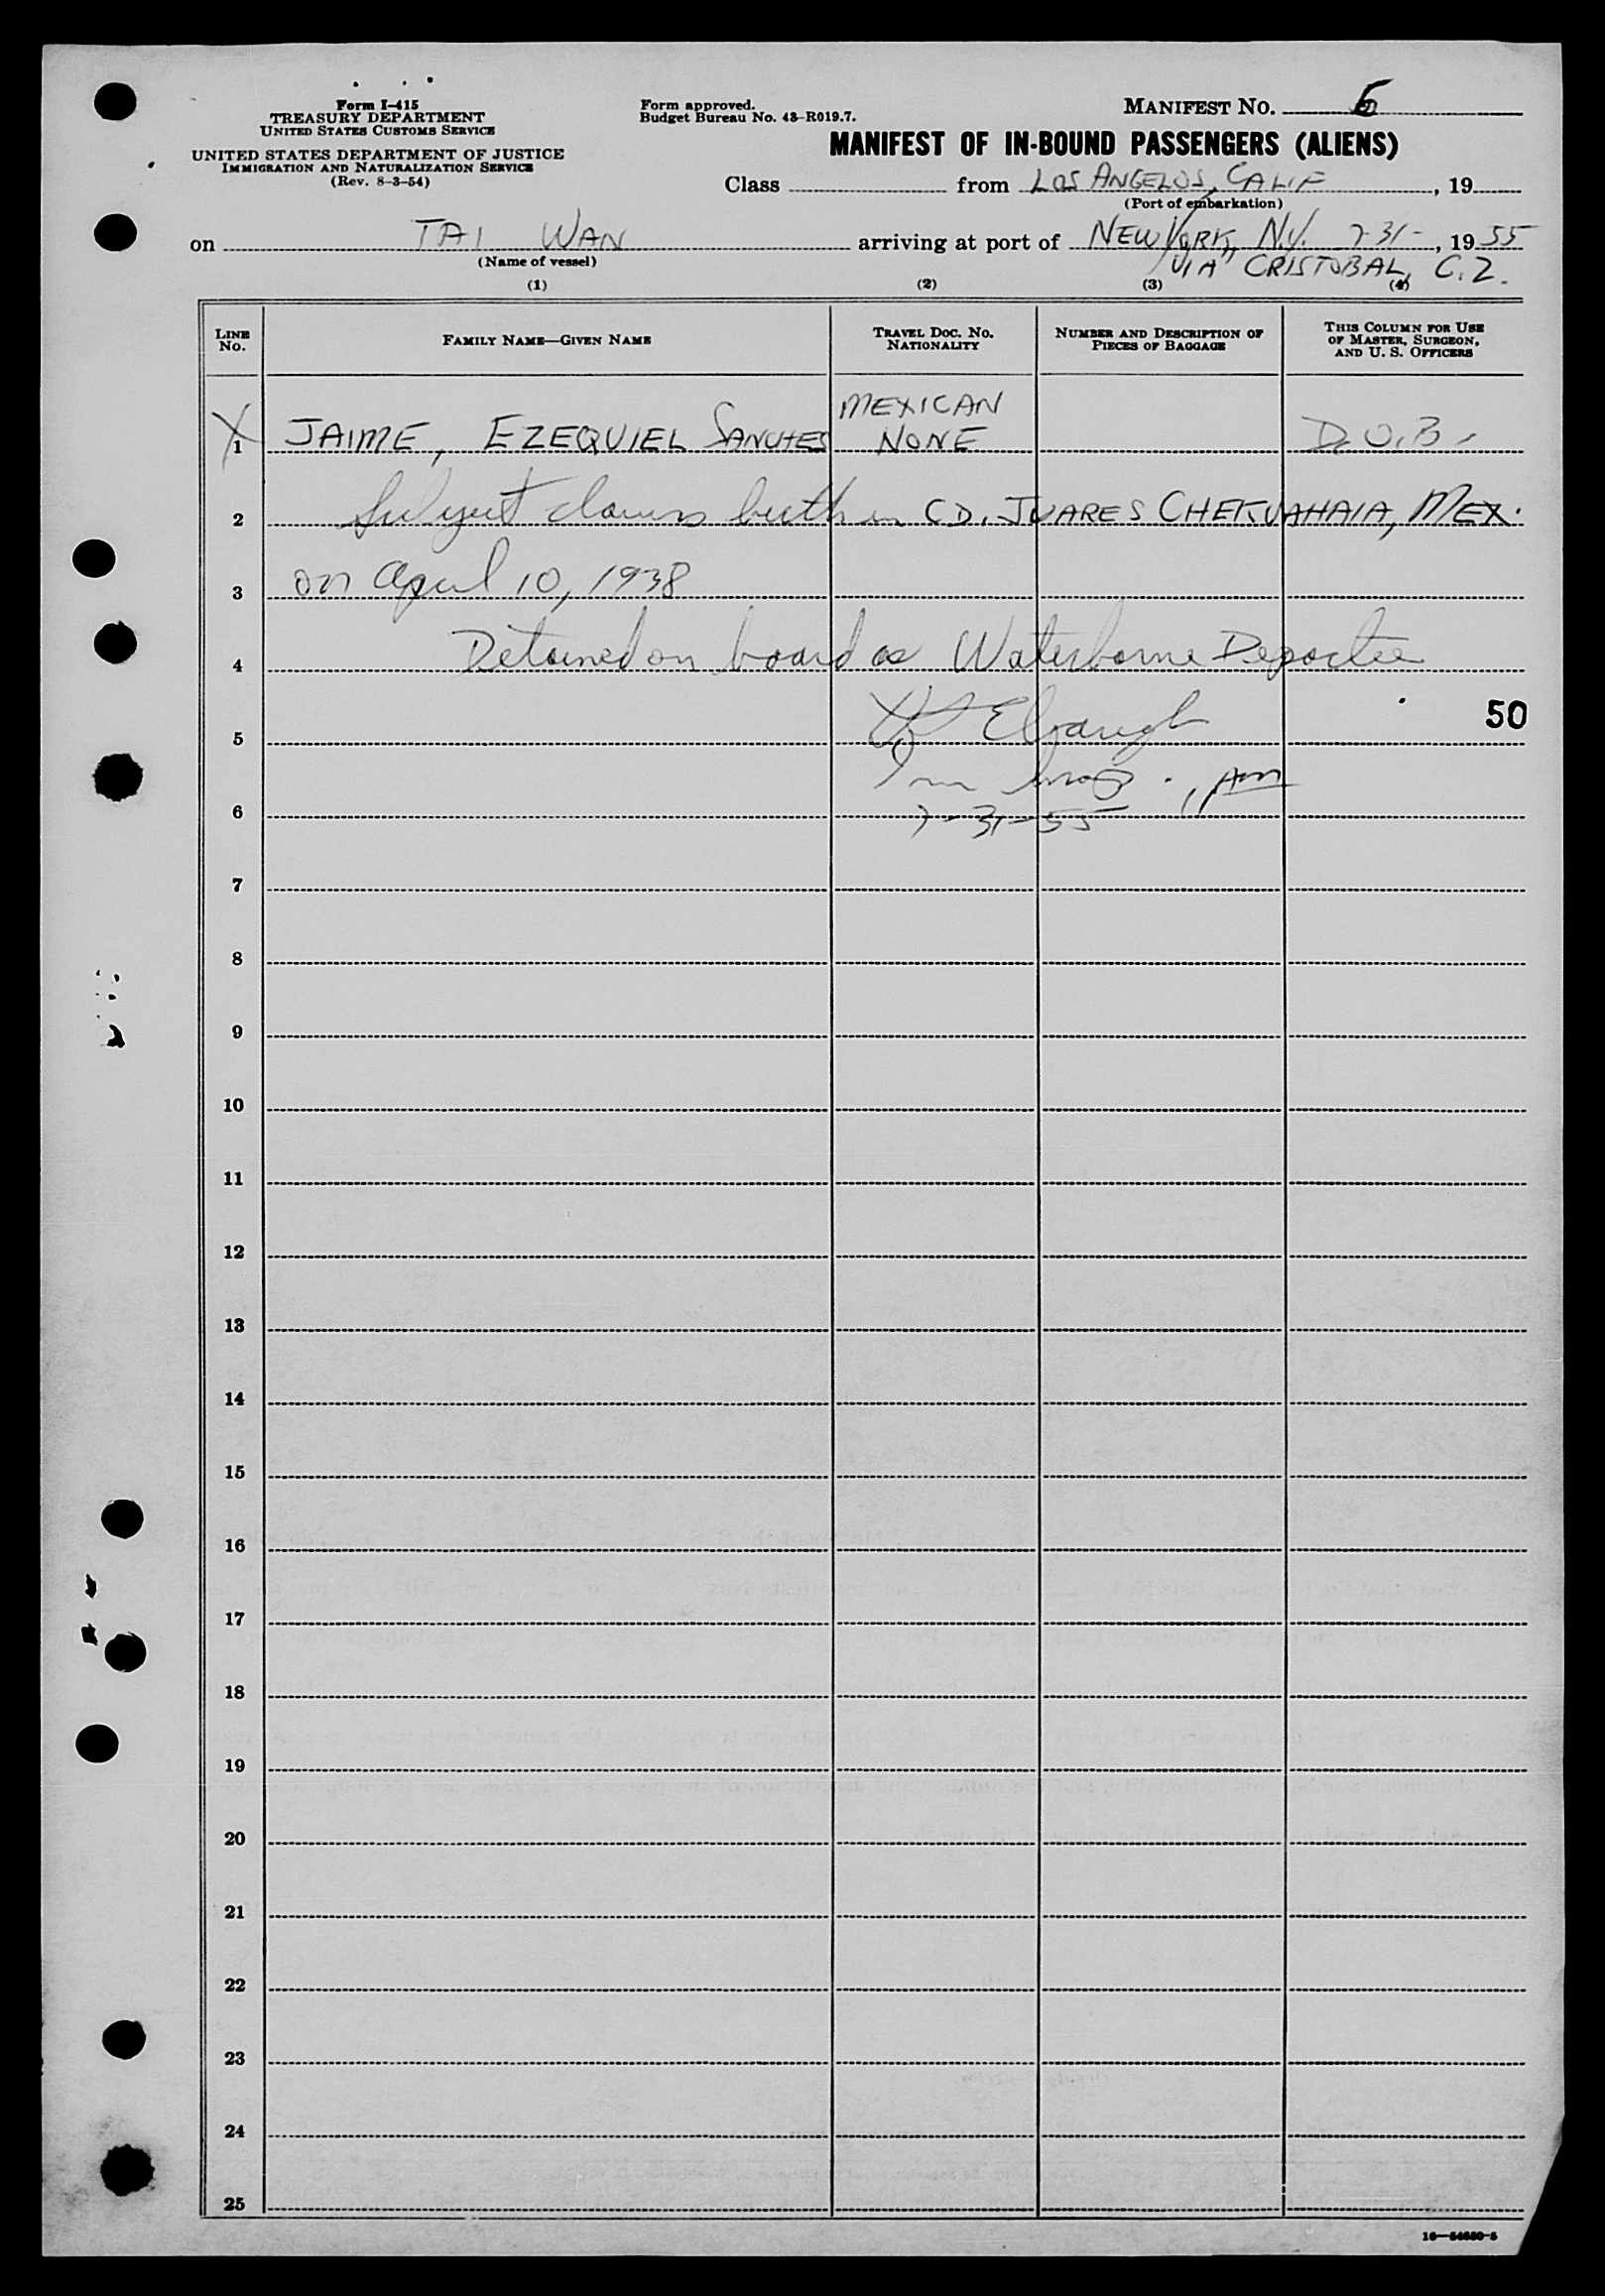 Form I-415
TREASURY DEPARTMENT
UNITED STATES CUSTOMS SERVICE
UNITED STATES DEPARTMENT OF JUSTICE
IMMIGRATION AND NATURALIZATION SERVICE
(Rev. 8-3-54)
Form approved.
Budget Bureau No. 43-R019.7.
MANIFEST NO. 6
MANIFEST OF IN-BOUND PASSENGERS (ALIENS)
Class from LOS ANGELOS, CALIF, 19
(Port of embarkation)
on TAI WAN arriving at port of NEW YORK, N.Y. 7-31-, 19 55
(Name of vessel)
VIA CRISTOBAL, C.Z.
(1) (2) (3) (4)
LINE NO.
FAMILY NAME—GIVEN NAME
TRAVEL DOC. NO. NATIONALITY
NUMBER AND DESCRIPTION OF PIECES OF BAGGAGE
THIS COLUMN FOR USE OF MASTER, SURGEON, AND U. S. OFFICERS
MEXICAN
X 1 JAIME, EZEQUIEL SANCHES NONE D.O.B.
2 Subject claims birth in CD. JUARES MEX.
3 on April 10, 1938
4 Detained on board as Waterborne Deportee
50
5 Elbaugh
Imm
6 7-31-55
7
8
9
10
11
12
13
14
15
16
17
18
19
20
21
22
23
24
25
16—54680-5